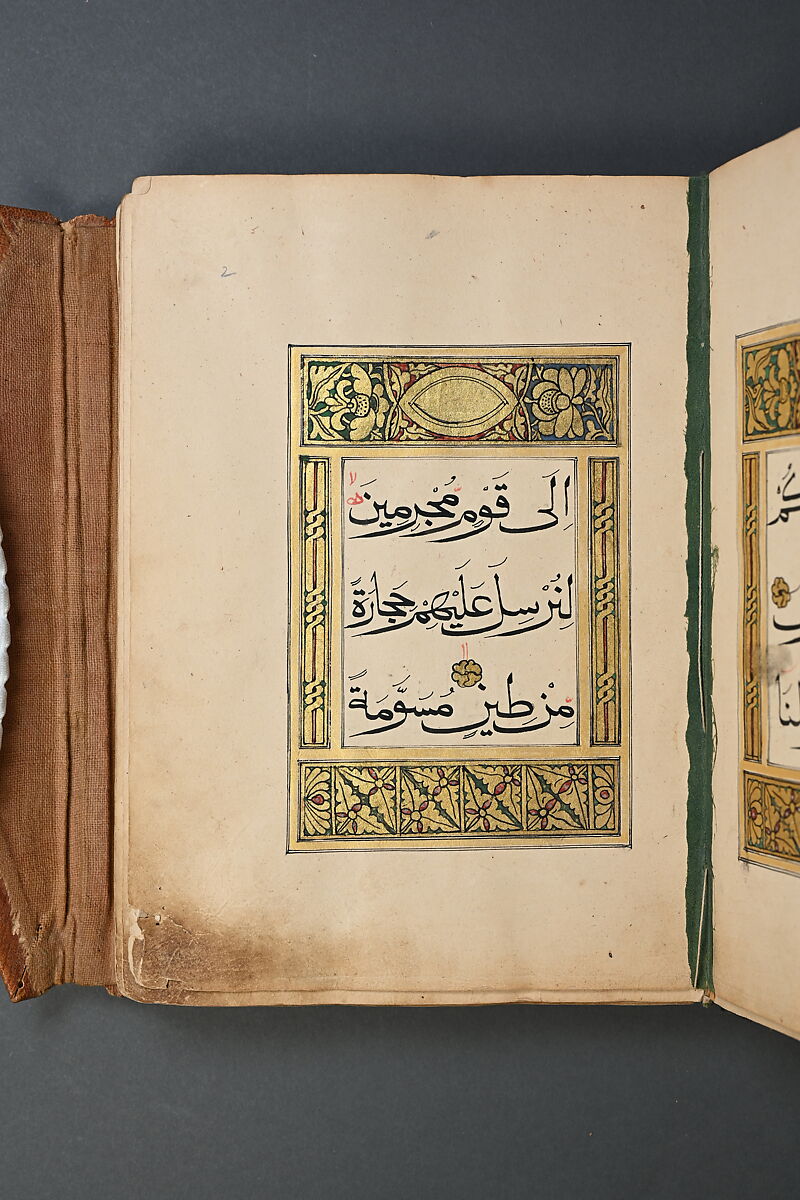 2
اِلَى قَوْمٍ مُجْرِمِينَ
لِنُرْسِلَ عَلَيْهِمْ حِجَارَةً
مِنْ طِينٍ مُسَوَّمَةً